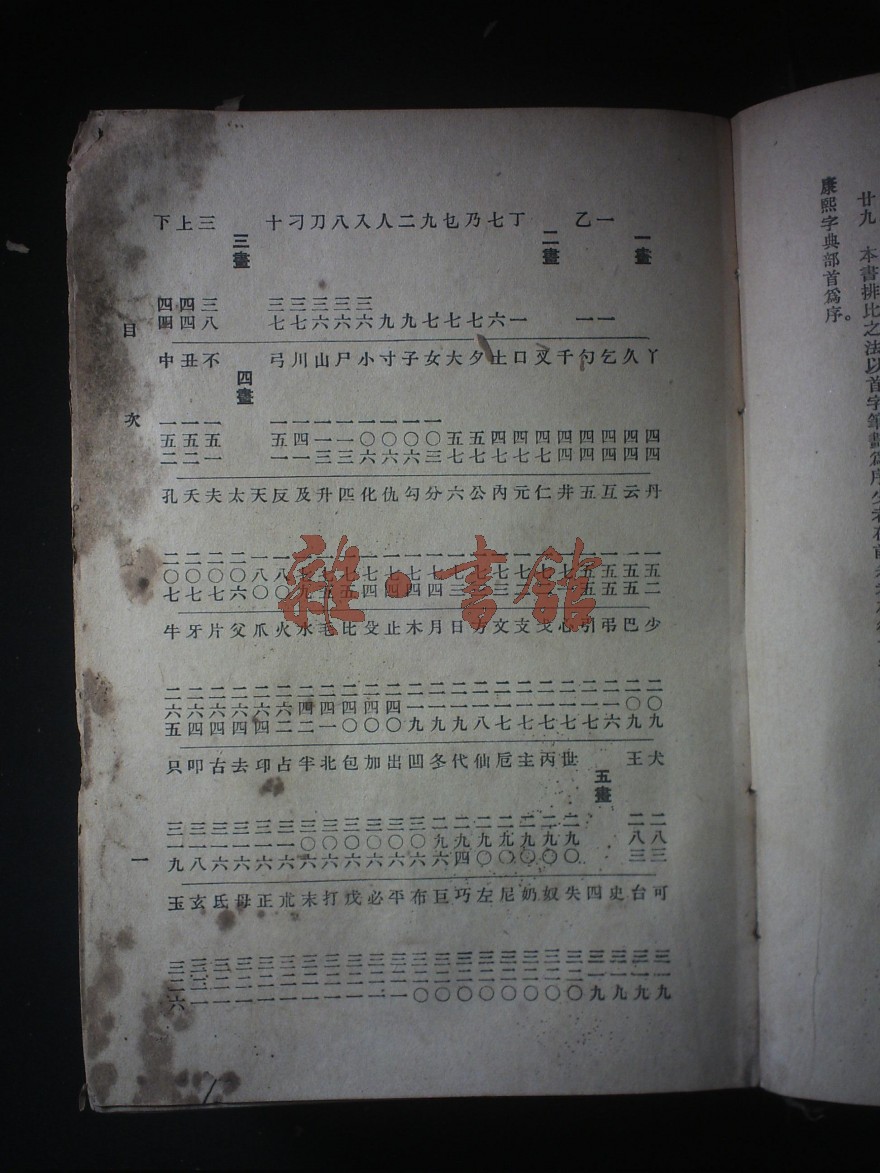 廿九 本書排比之法以首字筆畫爲序少者在前
康熙字典部首爲序。
一畫
一 一
乙 一
二畫
丁 一
七 六
乃 七
乜 七
九 七
二 九
人 九
入 三六
八 三六
刀 三六
刁 三七
十 三七
三畫
三 三八
上 四四
下 四四
丫 四四
久 四四
乞 四四
勺 四四
千 四四
叉 四七
口 四七
土 四七
夕 五七
大 五七
女 一〇三
子 一〇六
寸 一〇六
小 一〇六
尸 一一三
山 一一三
川 一四一
弓 一五一
四畫
不 一五一
丑 一五二
中 一五二
丹 一五二
云 一五二
互 一五五
五 一五五
井 一七一
仁 一七一
元 一七三
內 一七三
公 一七三
六 一七三
分 一七四
勾 一七四
仇 一七四
化 一七四
匹 一七五
升 一七五
及 一七九
反 一八〇
天 一八〇
太 二〇六
夫 二〇七
夭 二〇七
孔 二〇七
少 二〇九
巴 二〇九
弔 二一六
引 二一七
心 二一七
戈 二一七
支 二一七
文 二一七
方 二一八
日 二一九
月 二一九
木 二一九
止 二四〇
殳 二四〇
比 二四〇
毛 二四一
水 二四二
火 二六二
爪 二六四
父 二六四
片 二六四
牙 二六四
牛 二六五
犬 二八三
王 二八三
五畫
世 二九〇
丙 二九〇
主 二九〇
卮 二九〇
仙 二九〇
代 二九四
冬 二九六
凹 三〇六
出 三〇六
加 三〇六
包 三〇六
北 三〇六
半 三〇六
占 三一六
印 三一六
去 三一六
古 三一六
叩 三一八
只 三一九
可 三一九
台 三一九
史 三一九
四 三一九
失 三二〇
奴 三二〇
奶 三二〇
尼 三二〇
左 三二〇
巧 三二〇
巨 三二〇
布 三二〇
平 三二一
必 三二一
戊 三二一
打 三二一
末 三二一
朮 三二一
正 三二一
母 三二一
氐 三二一
玄 三二一
玉 三二六
目次 一
雜·書館